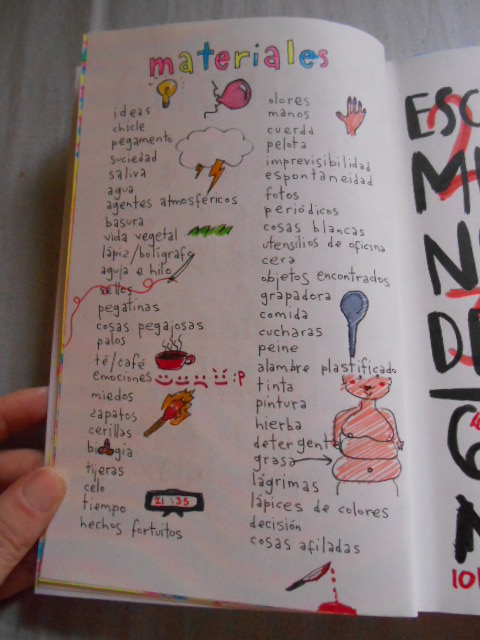 materiales
ideas
chicle
pegamento
suciedad
saliva
agua
agentes atmosféricos
basura
vida vegetal
lápiz/bolígrafo
aguja e hilo
sellos
pegatinas
cosas pegajosas
palos
té/café
emociones :P
miedos
zapatos
cerillas
biología
tijeras
celo
tiempo
21:35
hechos fortuitos
olores
manos
cuerda
pelota
imprevisibilidad
espontaneidad
fotos
periódicos
cosas blancas
utensilios de oficina
cera
objetos encontrados
grapadora
comida
cucharas
peine
alambre plastificado
tinta
pintura
hierba
detergente
grasa
lágrimas
lápices de colores
decisión
cosas afiladas